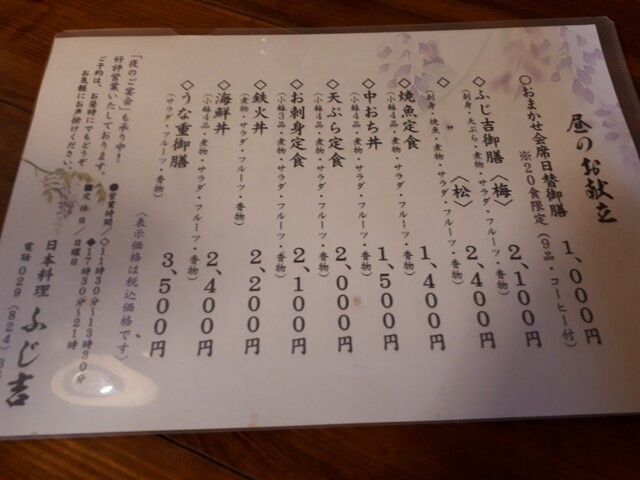 昼のお献立
○おまかせ会席日替御膳 1,000円
※20食限定 (9品・コーヒー付)
◇ふじ吉御膳〈梅〉 2,100円
(刺身・天ぷら・煮物・サラダ・フルーツ・香物)
◇ 〃 〈松〉 2,400円
(刺身・焼魚・煮物・サラダ・フルーツ・香物)
◇焼魚定食 1,400円
(小鉢4品・煮物・サラダ・フルーツ・香物)
◇中おち丼 1,500円
(小鉢4品・煮物・サラダ・フルーツ・香物)
◇天ぷら定食 2,000円
(小鉢4品・煮物・サラダ・フルーツ・香物)
◇お刺身定食 2,100円
(小鉢3品・煮物・サラダ・フルーツ・香物)
◇鉄火丼 2,200円
(煮物・サラダ・フルーツ・香物)
◇海鮮丼 2,400円
(小鉢4品・煮物・サラダ・フルーツ・香物)
◇うな重御膳 3,500円
(サラダ・フルーツ・香物)
〈表示価格は税込価格です〉
「夜のご宴会」も承り中!
好評営業いたしております。
ご予約は、お昼時にでもどうぞ
お気軽にお声掛けください。
●営業時間/◇11時30分〜13時30分
◆17時30分〜21時
■定休日/日曜日
日本料理 ふじ吉
電話 029(824)